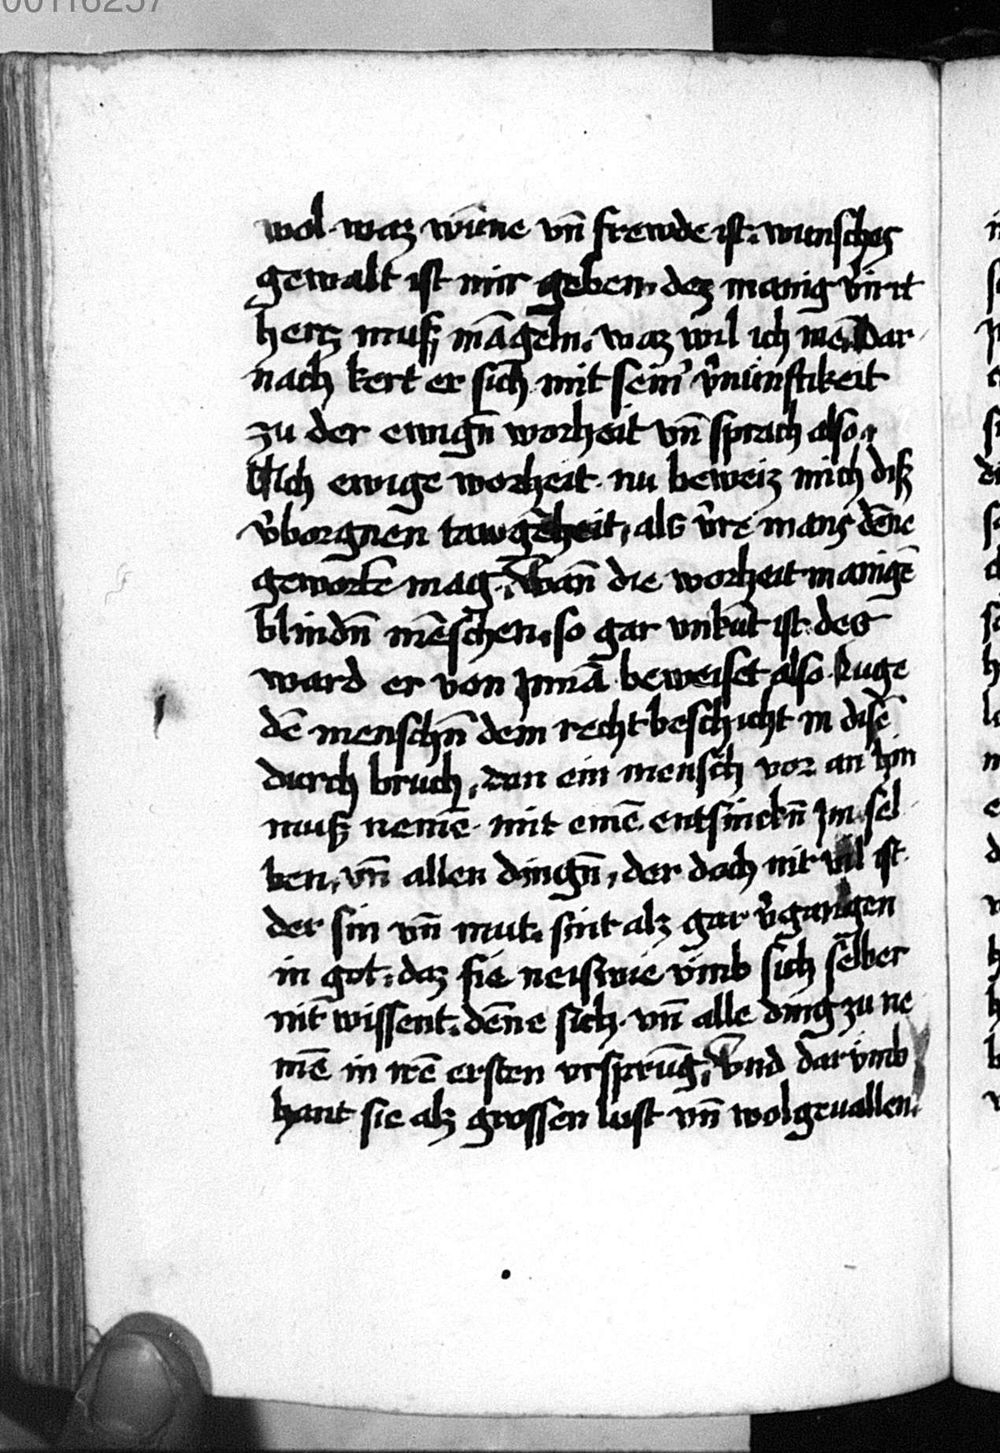 00116257
wol. waz wūne vn̄ frewde ist. wunsches
gewalt ist mir geben. dez manig virrt
hertz muß māgeln. waz wil ich me. Dar
nach kert er sich mit sein' v'nünftikeit
zu der ewign̄ worheit vn̄ sprach also.
Ach ewige worheit. nu beweiz mich diß
v'borgnen tawgēheit, als v're mans dēne
geworten mag. wan̄ die worheit manigē
blindn̄ mēschen. so gar vnkūt ist. des
ward er von Jnnā beweiset also. Luge
dē menschn̄ dem recht beschicht in disē
durch bruch, den ein mensch vor an hin
muß nemē. mit einē entsinckn̄ Jm sel
ben, vn̄ allen dingn̄, der doch nit vil ist.
der sin vn̄ mut. sint alz gar v'gangen
in got. daz sie neiswie vmb sich selber
nit wissent. dēne sich. vn̄ alle ding zu ne
mē in irē ersten vrsprūg. Vnd dar vmb
hant sie alz grossen lust vn̄ wolgeuallen.